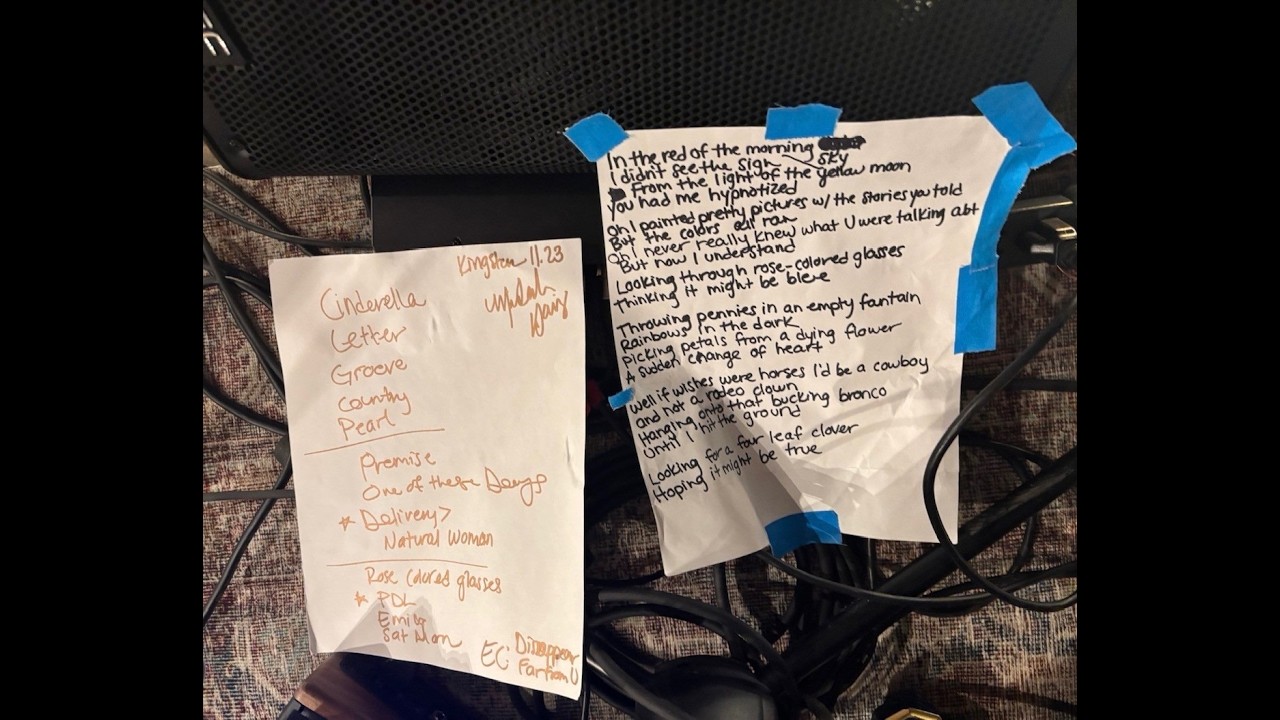 Kingston 11.23
Cinderella
Letter
Groove
Country
Pearl
Promise
One of these Days
* Delivery >
Natural Woman
Rose Colored glasses
* PDL
Emily
Sat Morn
EC Disappear
Far from U
In the red of the morning
sky
I didn't see the sign
From the light of the yellow moon
You had me hypnotized
Oh I painted pretty pictures w/ the stories you told
But the colors all ran
Oh I never really knew what U were talking abt
But now I understand
Looking through rose-colored glasses
Thinking it might be blue
Throwing pennies in an empty fantain
Rainbows in the dark
picking petals from a dying flower
A sudden change of heart
Well if wishes were horses I'd be a cowboy
and not a rodeo clown
Hanging onto that bucking bronco
Until I hit the ground
Looking for a four leaf clover
Hoping it might be true